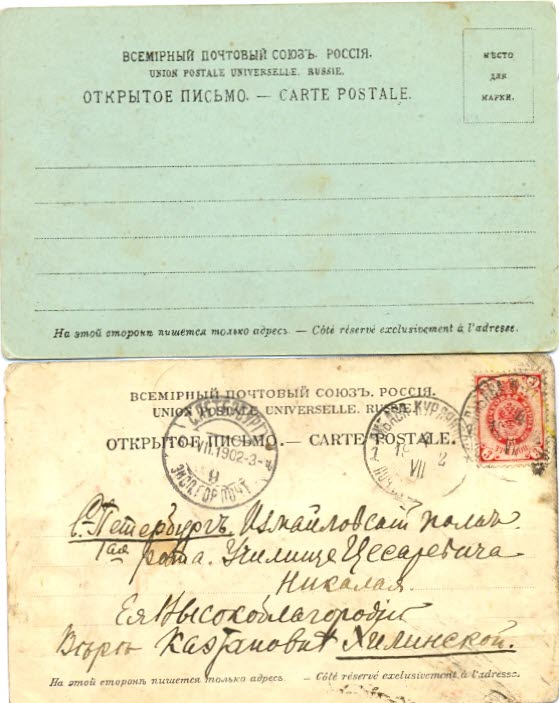 ВСЕМІРНЫЙ ПОЧТОВЫЙ СОЮЗЪ. РОССІЯ.
UNION POSTALE UNIVERSELLE. RUSSIE.
ОТКРЫТОЕ ПИСЬМО. — CARTE POSTALE.
МѢСТО
ДЛЯ
МАРКИ.
На этой сторонѣ пишется только адресъ. — Côté réservé exclusivement à l'adresse.
ВСЕМІРНЫЙ ПОЧТОВЫЙ СОЮЗЪ. РОССІЯ.
UNION POSTALE UNIVERSELLE. RUSSIE.
ОТКРЫТОЕ ПИСЬМО. — CARTE POSTALE.
VII.1902-3-
9
VII
С.-Петербургъ. Измайловскій полкъ.
1ая рота. Училище Цесаревича
Николая.
Ея Высокоблагородію
Хилинской.
На этой сторонѣ пишется только адресъ. — Côté réservé exclusivement à l'adresse.